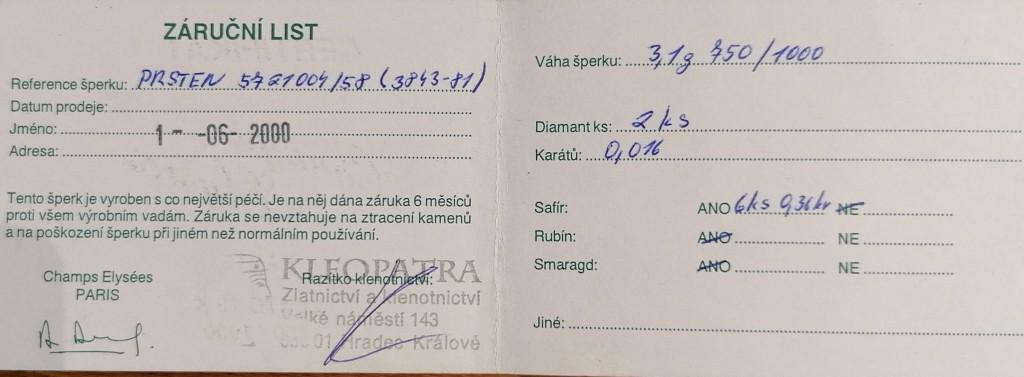 ZÁRUČNÍ LIST
Reference šperku: PRSTEN 5721004/58 (3843-81)
Datum prodeje:
Jméno: 1- -06- 2000
Adresa:
Tento šperk je vyroben s co největší péčí. Je na něj dána záruka 6 měsíců
proti všem výrobním vadám. Záruka se nevztahuje na ztracení kamenů
a na poškození šperku při jiném než normálním používání.
Champs Elysées
PARIS
KLEOPATRA
Razítko klenotnictví:
Zlatnictví a klenotnictví
Velké náměstí 143
01 Hradec Králové
Váha šperku: 3,1g 750/1000
Diamant ks: 2 ks
Karátů: 0,016
Safír: ANO 6ks 0,36kr NE
Rubín: ANO NE
Smaragd: ANO NE
Jiné: